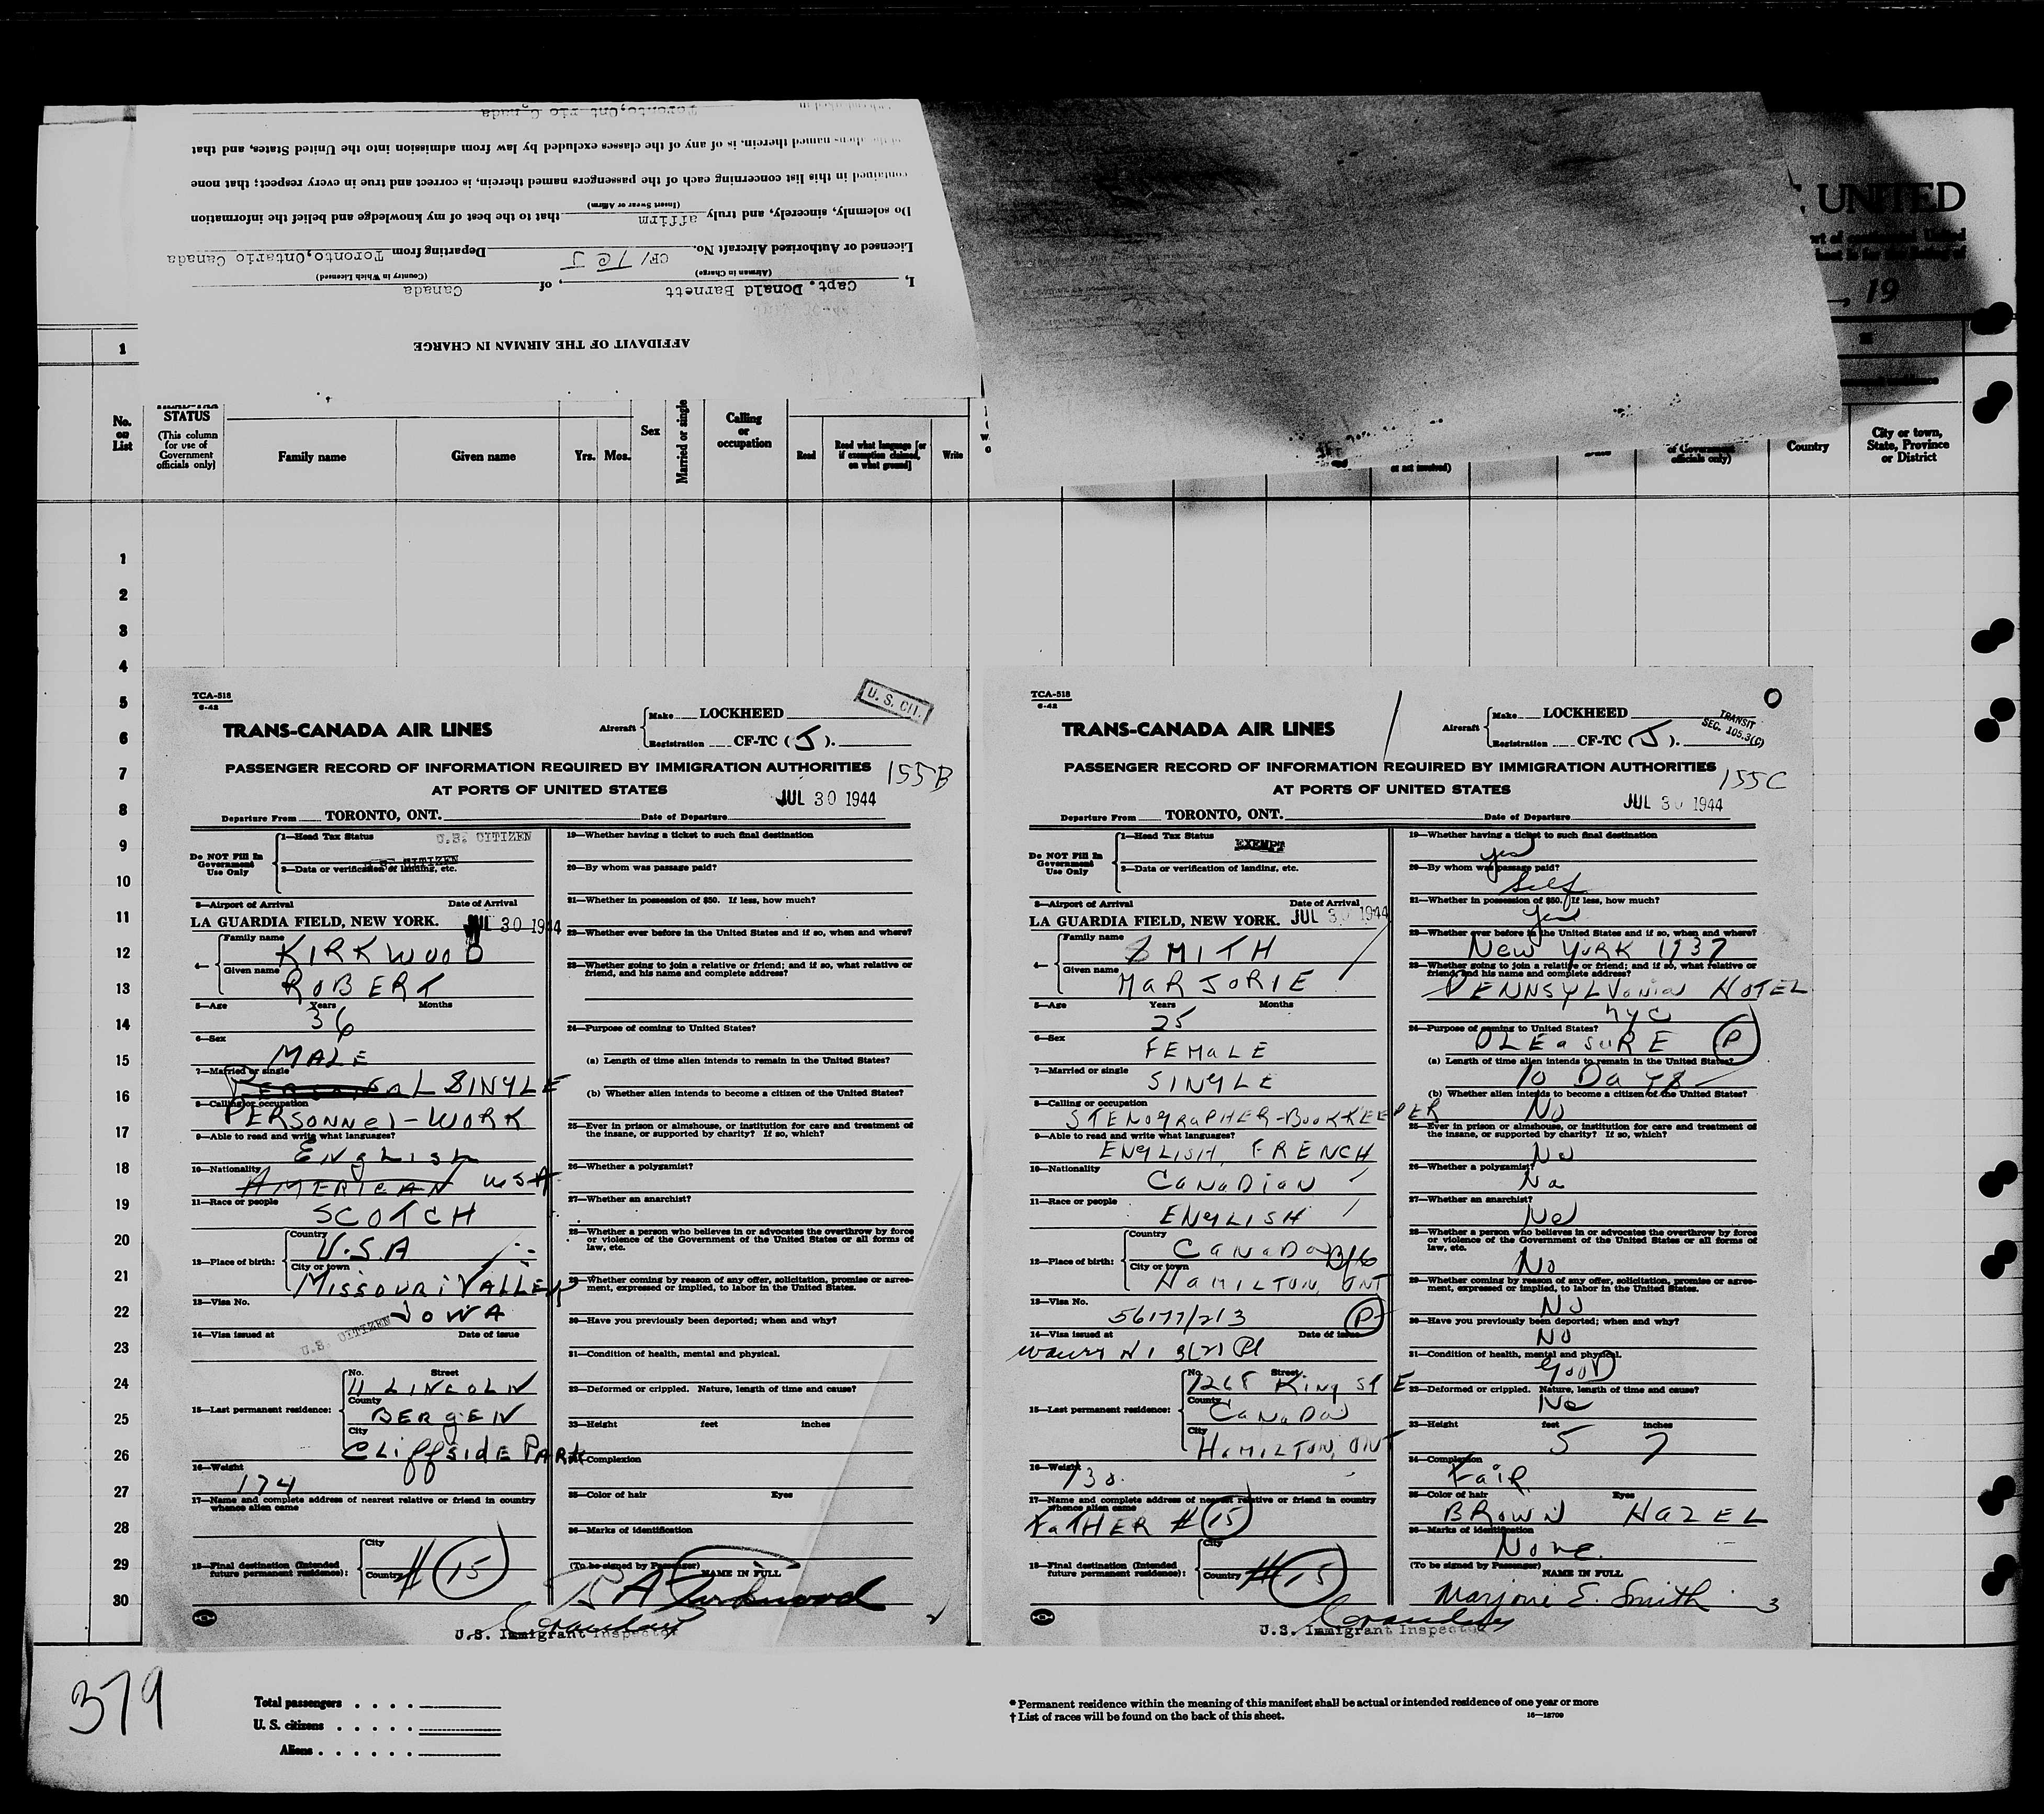 Toronto, Ontario Canada
of the aliens named therein, is of any of the classes excluded by law from admission into the United States, and that
contained in this list concerning each of the passengers named therein, is correct and true in every respect; that none
(Insert Swear or Affirm)
Do solemnly, sincerely, and truly affirm that to the best of my knowledge and belief the information
Licensed or Authorized Aircraft No. CF/TCJ Departing from Toronto, Ontario Canada
(Airman in Charge) (Country in Which Licensed)
I, Capt. Donald Barnett, of Canada
AFFIDAVIT OF THE AIRMAN IN CHARGE
UNITED
, 19
1
No. on List
STATUS
(This column for use of Government officials only)
Family name
Given name
Yrs. Mos.
Sex
Married or single
Calling or occupation
Read
Read what language [or if exemption claimed, on what ground]
Write
of Government officials only)
Country
City or town, State, Province or District
1
2
3
4
5
6
7
8
9
10
11
12
13
14
15
16
17
18
19
20
21
22
23
24
25
26
27
28
29
30
TCA-518
6-42
U. S. CIT.
TRANS-CANADA AIR LINES
Aircraft
Make LOCKHEED
Registration CF-TC (J).
PASSENGER RECORD OF INFORMATION REQUIRED BY IMMIGRATION AUTHORITIES
155B
AT PORTS OF UNITED STATES
JUL 30 1944
Departure From TORONTO, ONT. Date of Departure
Do NOT Fill In Government Use Only
1—Head Tax Status U.S. CITIZEN
U.S. CITIZEN
2—Data or verification of landing, etc.
3—Airport of Arrival Date of Arrival
LA GUARDIA FIELD, NEW YORK. JUL 30 1944
4—
Family name KIRKWOOD
Given name ROBERT
5—Age Years Months
36
6—Sex
MALE
7—Married or single
SINGLE
8—Calling or occupation
PERSONNEL-WORK
9—Able to read and write what languages?
ENGLISH
10—Nationality
AMERICAN U.S.A.
11—Race or people
SCOTCH
12—Place of birth:
Country
U.S.A
City or town
MISSOURI VALLEY
13—Visa No.
IOWA
14—Visa issued at Date of issue
U.S. CITIZEN
15—Last permanent residence:
No. Street
11 LINCOLN
County
BERGEN
City
CLIFFSIDE PARK
16—Weight
174
17—Name and complete address of nearest relative or friend in country whence alien came
18—Final destination (Intended future permanent residence):
City
Country
# 15
19—Whether having a ticket to such final destination
20—By whom was passage paid?
21—Whether in possession of $50. If less, how much?
22—Whether ever before in the United States and if so, when and where?
23—Whether going to join a relative or friend; and if so, what relative or friend, and his name and complete address?
24—Purpose of coming to United States?
(a) Length of time alien intends to remain in the United States?
(b) Whether alien intends to become a citizen of the United States?
25—Ever in prison or almshouse, or institution for care and treatment of the insane, or supported by charity? If so, which?
26—Whether a polygamist?
27—Whether an anarchist?
28—Whether a person who believes in or advocates the overthrow by force or violence of the Government of the United States or all forms of law, etc.
29—Whether coming by reason of any offer, solicitation, promise or agreement, expressed or implied, to labor in the United States.
30—Have you previously been deported; when and why?
31—Condition of health, mental and physical.
32—Deformed or crippled. Nature, length of time and cause?
33—Height feet inches
34—Complexion
35—Color of hair Eyes
36—Marks of identification
(To be signed by Passenger) NAME IN FULL
R A Kirkwood
2
U.S. Immigrant Inspector
TCA-518
6-42
TRANS-CANADA AIR LINES
Aircraft
Make LOCKHEED
Registration CF-TC (J).
TRANSIT
SEC. 105.3(C)
PASSENGER RECORD OF INFORMATION REQUIRED BY IMMIGRATION AUTHORITIES
155C
AT PORTS OF UNITED STATES
JUL 30 1944
Departure From TORONTO, ONT. Date of Departure
Do NOT Fill In Government Use Only
1—Head Tax Status
EXEMPT
2—Data or verification of landing, etc.
3—Airport of Arrival Date of Arrival
LA GUARDIA FIELD, NEW YORK. JUL 30 1944
4—
Family name SMITH
Given name MARJORIE
5—Age Years Months
25
6—Sex
FEMALE
7—Married or single
SINGLE
8—Calling or occupation
STENOGRAPHER-BOOKKEEPER
9—Able to read and write what languages?
ENGLISH, FRENCH
10—Nationality
CANADIAN
11—Race or people
ENGLISH
12—Place of birth:
Country
CANADA
City or town
HAMILTON, ONT
13—Visa No.
56177/213 P
14—Visa issued at Date of issue
15—Last permanent residence:
No. Street
1268 King St E
County
CANADA
City
HAMILTON, ONT
16—Weight
130.
17—Name and complete address of nearest relative or friend in country whence alien came
FATHER # 15
18—Final destination (Intended future permanent residence):
City
Country
# 15
19—Whether having a ticket to such final destination
yes
20—By whom was passage paid?
Self
21—Whether in possession of $50. If less, how much?
Yes
22—Whether ever before in the United States and if so, when and where?
NEW YORK 1937
23—Whether going to join a relative or friend; and if so, what relative or friend, and his name and complete address?
PENNSYLVania HOTEL
NYC
24—Purpose of coming to United States?
PLEASURE P
(a) Length of time alien intends to remain in the United States?
10 Days
(b) Whether alien intends to become a citizen of the United States?
No
25—Ever in prison or almshouse, or institution for care and treatment of the insane, or supported by charity? If so, which?
No
26—Whether a polygamist?
No
27—Whether an anarchist?
No
28—Whether a person who believes in or advocates the overthrow by force or violence of the Government of the United States or all forms of law, etc.
No
29—Whether coming by reason of any offer, solicitation, promise or agreement, expressed or implied, to labor in the United States.
NO
30—Have you previously been deported; when and why?
NO
31—Condition of health, mental and physical.
GOOD
32—Deformed or crippled. Nature, length of time and cause?
No
33—Height feet inches
5 7
34—Complexion
Fair
35—Color of hair Eyes
BROWN HAZEL
36—Marks of identification
None.
(To be signed by Passenger) NAME IN FULL
Marjorie E. Smith
3
U.S. Immigrant Inspector
379
Total passengers . . . .
U. S. citizens . . . . .
Aliens . . . . . .
* Permanent residence within the meaning of this manifest shall be actual or intended residence of one year or more
† List of races will be found on the back of this sheet.
16—18709